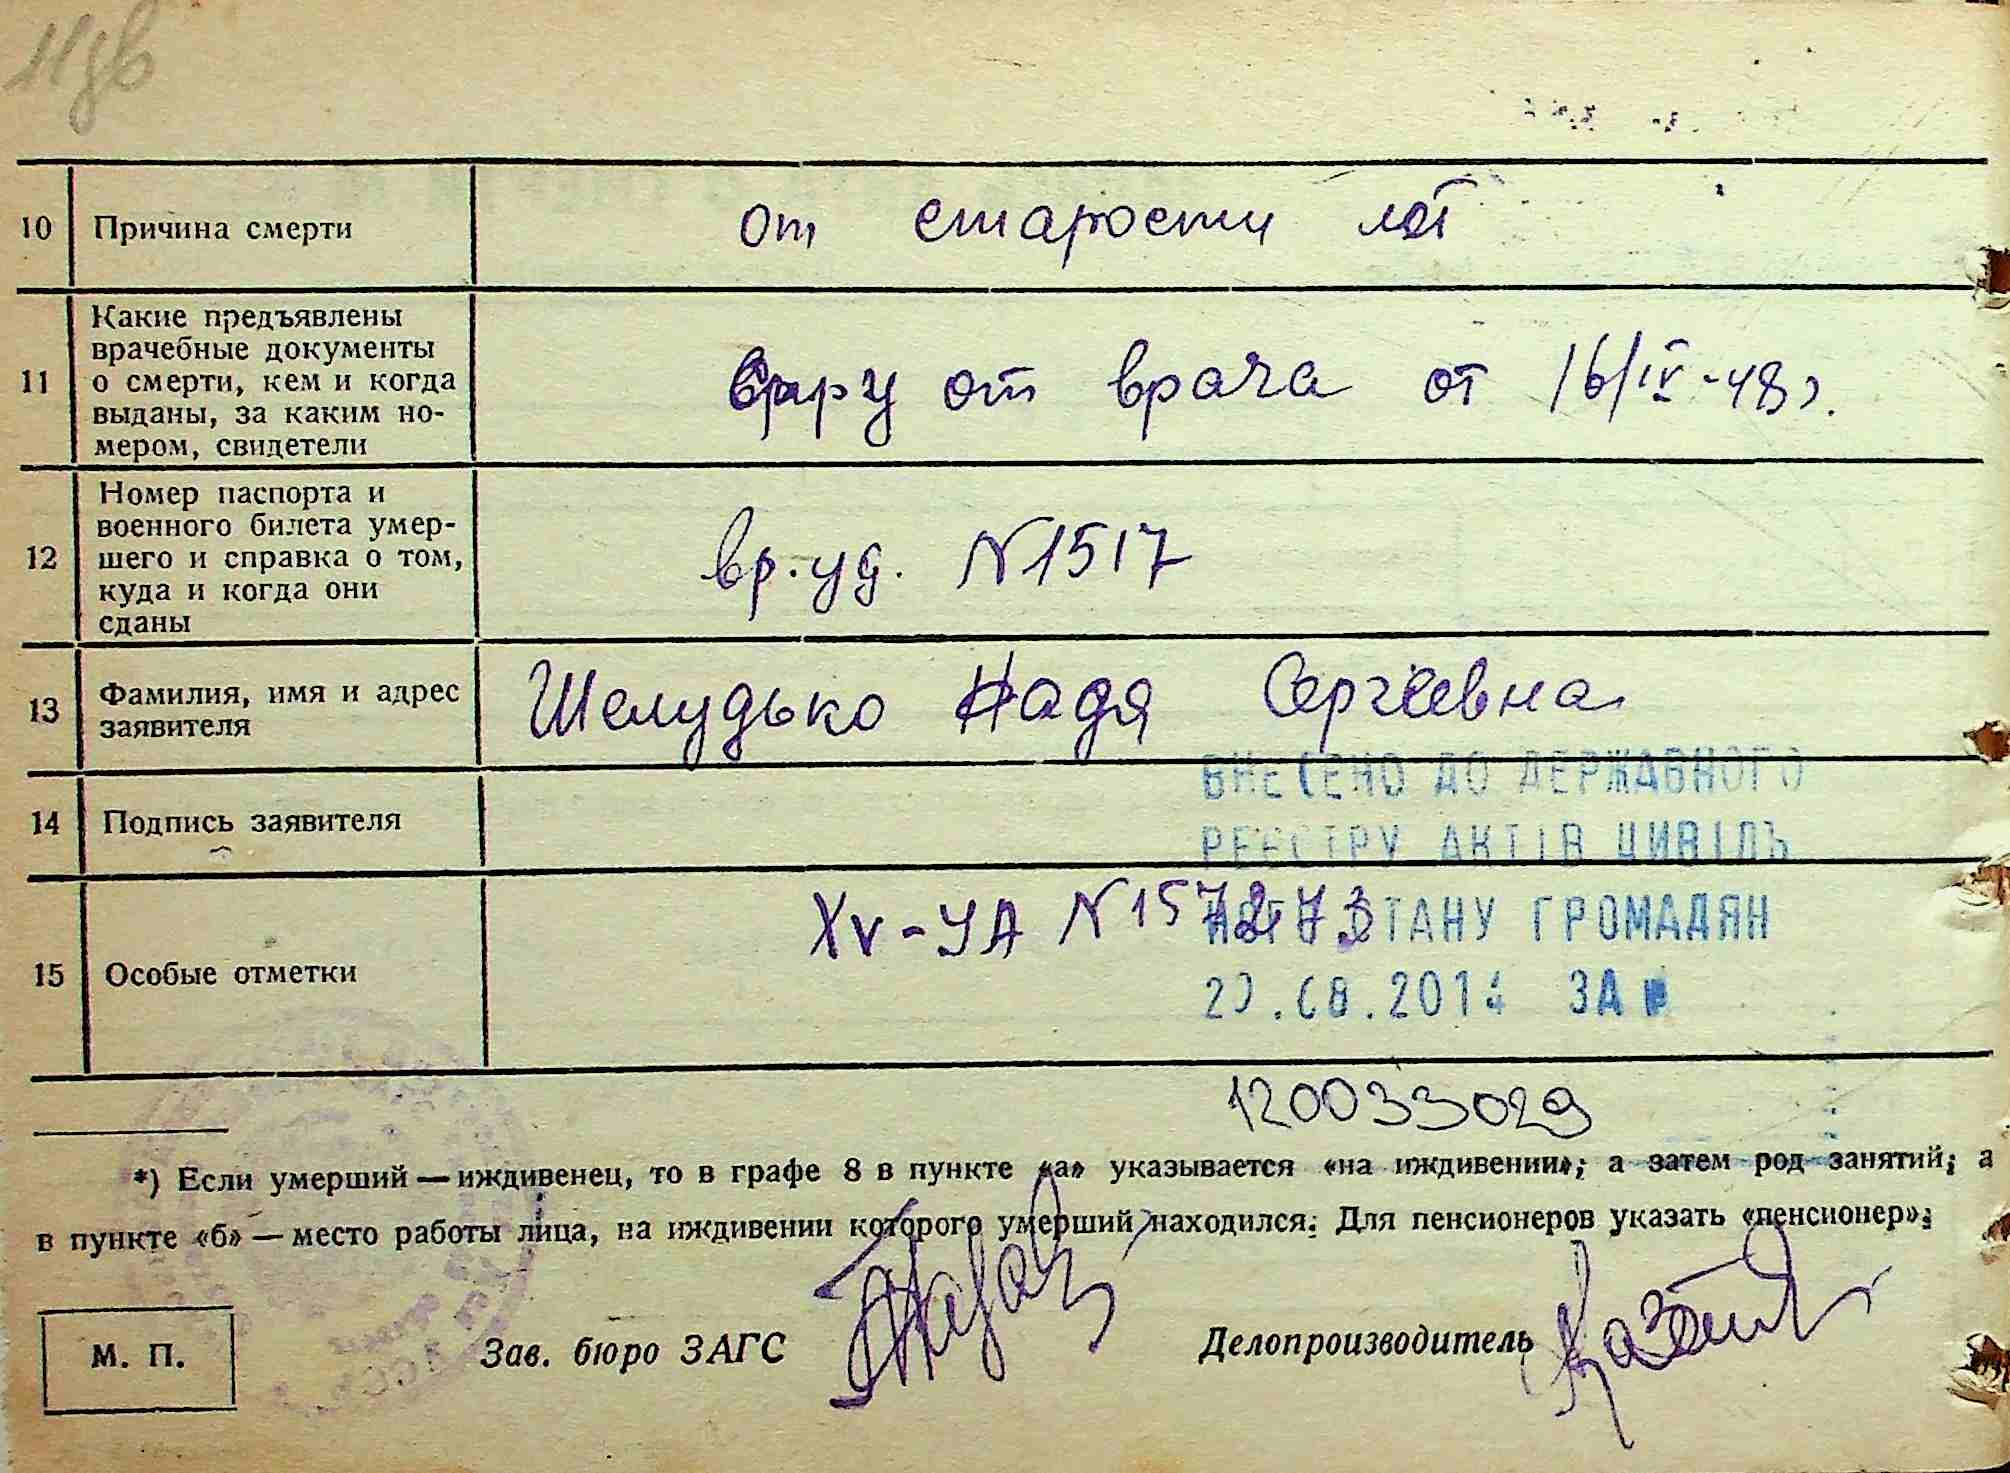 10 Причина смерти
от старости лет
11 Какие предъявлены
врачебные документы
о смерти, кем и когда
выданы, за каким но-
мером, свидетели
от врача от 16/IV-48г.
12 Номер паспорта и
военного билета умер-
шего и справка о том,
куда и когда они
сданы
вр. уд. N1517
13 Фамилия, имя и адрес
заявителя
Шелудько Надя Сергеевна
ВНЕСЕНО ДО ДЕРЖАВНОГО
14 Подпись заявителя
РЕЄСТРУ АКТІВ ЦИВІЛЬ
15 Особые отметки
XV-УА N
СТАНУ ГРОМАДЯН
ЗА
120033029
*) Если умерший — иждивенец, то в графе 8 в пункте «а» указывается «на иждивении»; а затем род занятий; а
в пункте «б» — место работы лица, на иждивении которого умерший находился. Для пенсионеров указать «пенсионер».
М. П.
Зав. бюро ЗАГС
Делопроизводитель